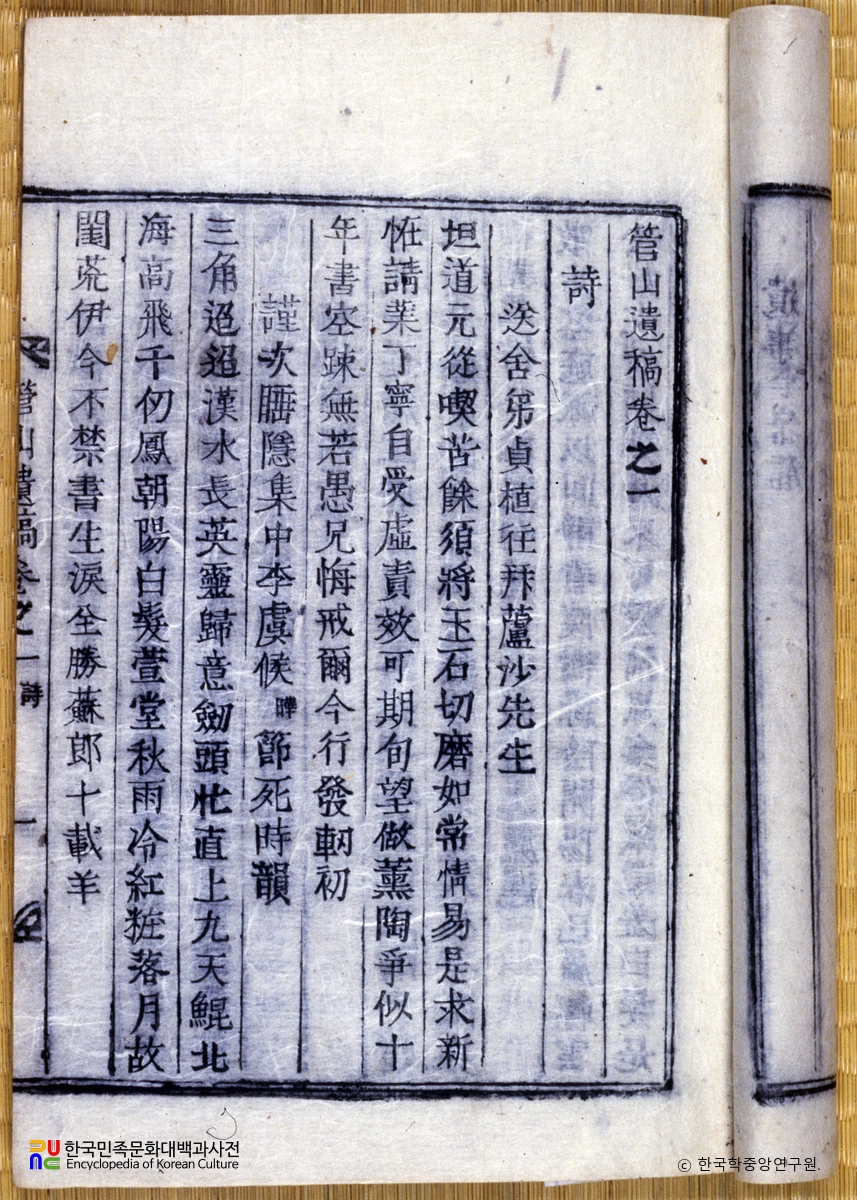 管山遺稿卷之一
詩
送舍弟貞植往拜蘆沙先生
坦道元從喫苦餘須將玉石切磨如常情易是求新
恠請業丁寧自受虛責效可期旬望做薰陶爭似十
年書空踈無若愚兄悔戒爾今行發軔初
謹次睡隱集中李虞候曄節死時韻
三角迢迢漢水長英靈歸意劒頭忙直上九天鯤北
海高飛千仞鳳朝陽白髮萱堂秋雨冷紅粧落月故
閨荒伊今不禁書生淚全勝蘇郎十載羊
管山遺稿卷之一 詩 一
한국민족문화대백과사전
Encyclopedia of Korean Culture
© 한국학중앙연구원.